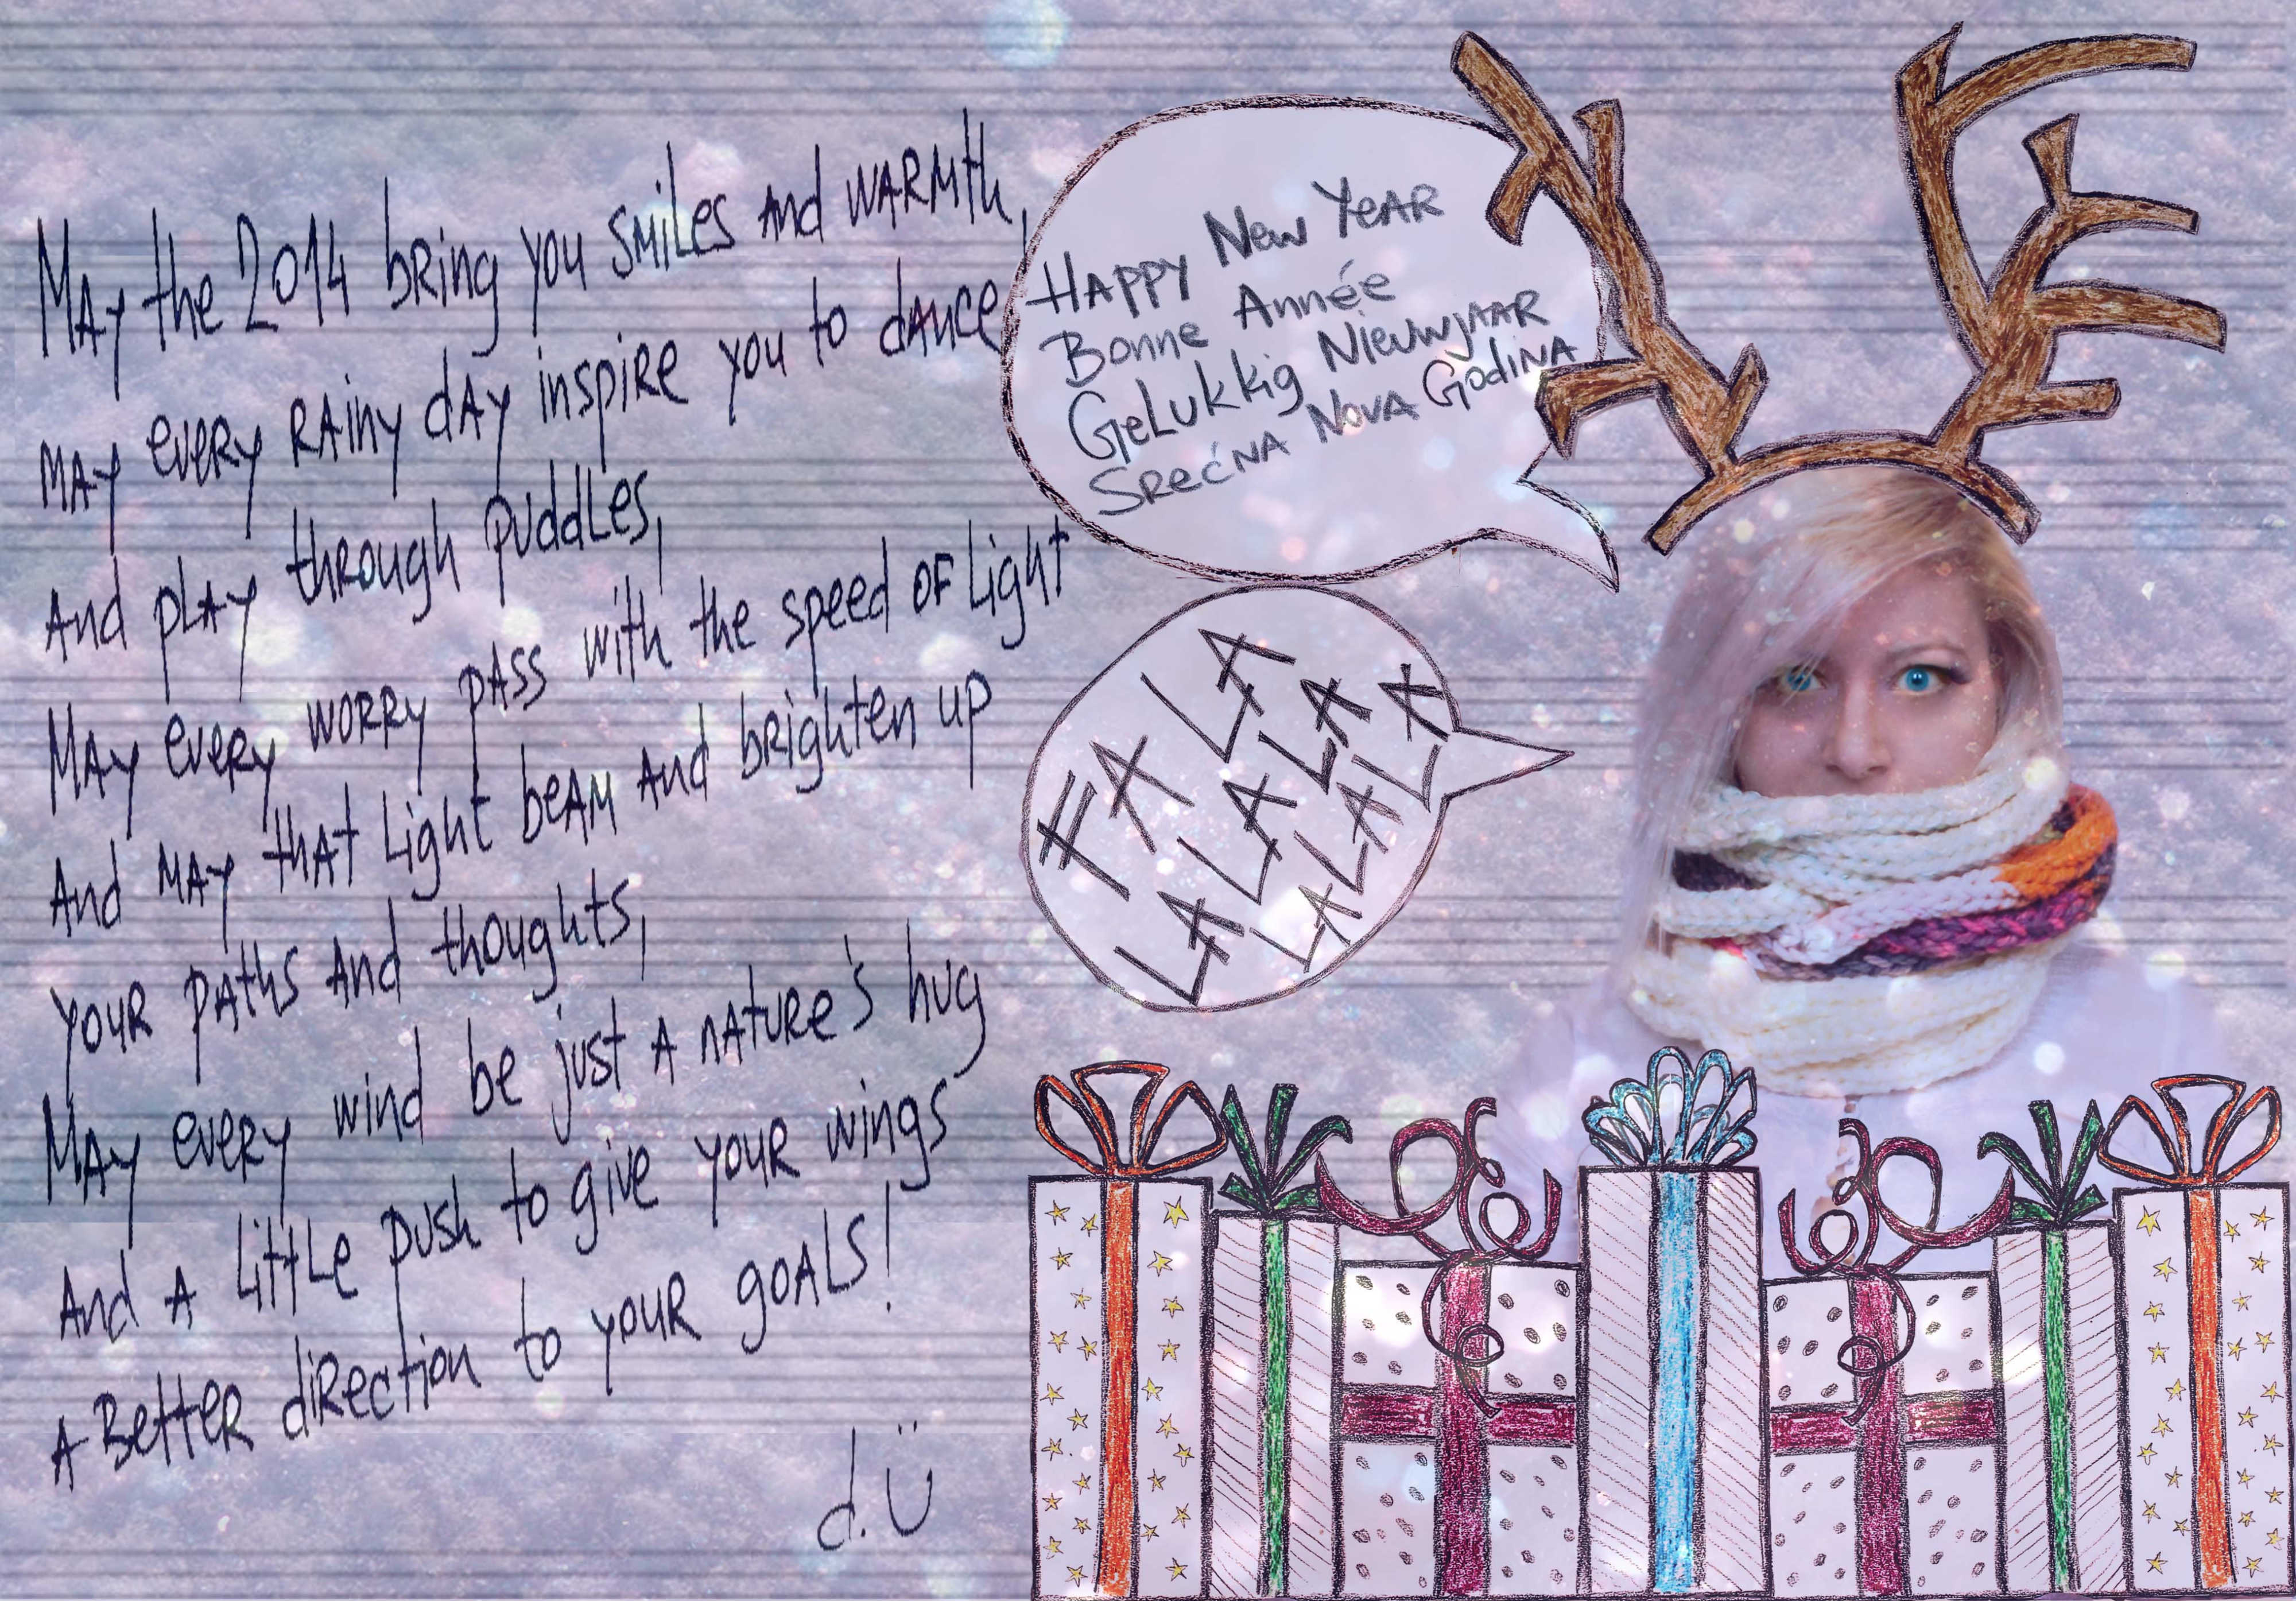 MAy the 2014 bRing you sMiLes And WARMth,
MAy eveRy RAiny dAy inspiRe you to dAnce
And pLAy thRough puddLes,
MAy eveRy woRRy pAss with the speed oF Light
And MAy thAt Light beAM And bRighten up
youR pAths And thoughts,
MAy eveRy wind be just A nAtuRe's hug
And A LittLe push to give youR wings
A BetteR diRection to youR goALs!
d.Ü
HAppy New YeAR
Bonne Année
GeLukkig NieuwjAAR
SRećNA NovA GodiNA
FA LA
LA LA LA
LA LA LA LA